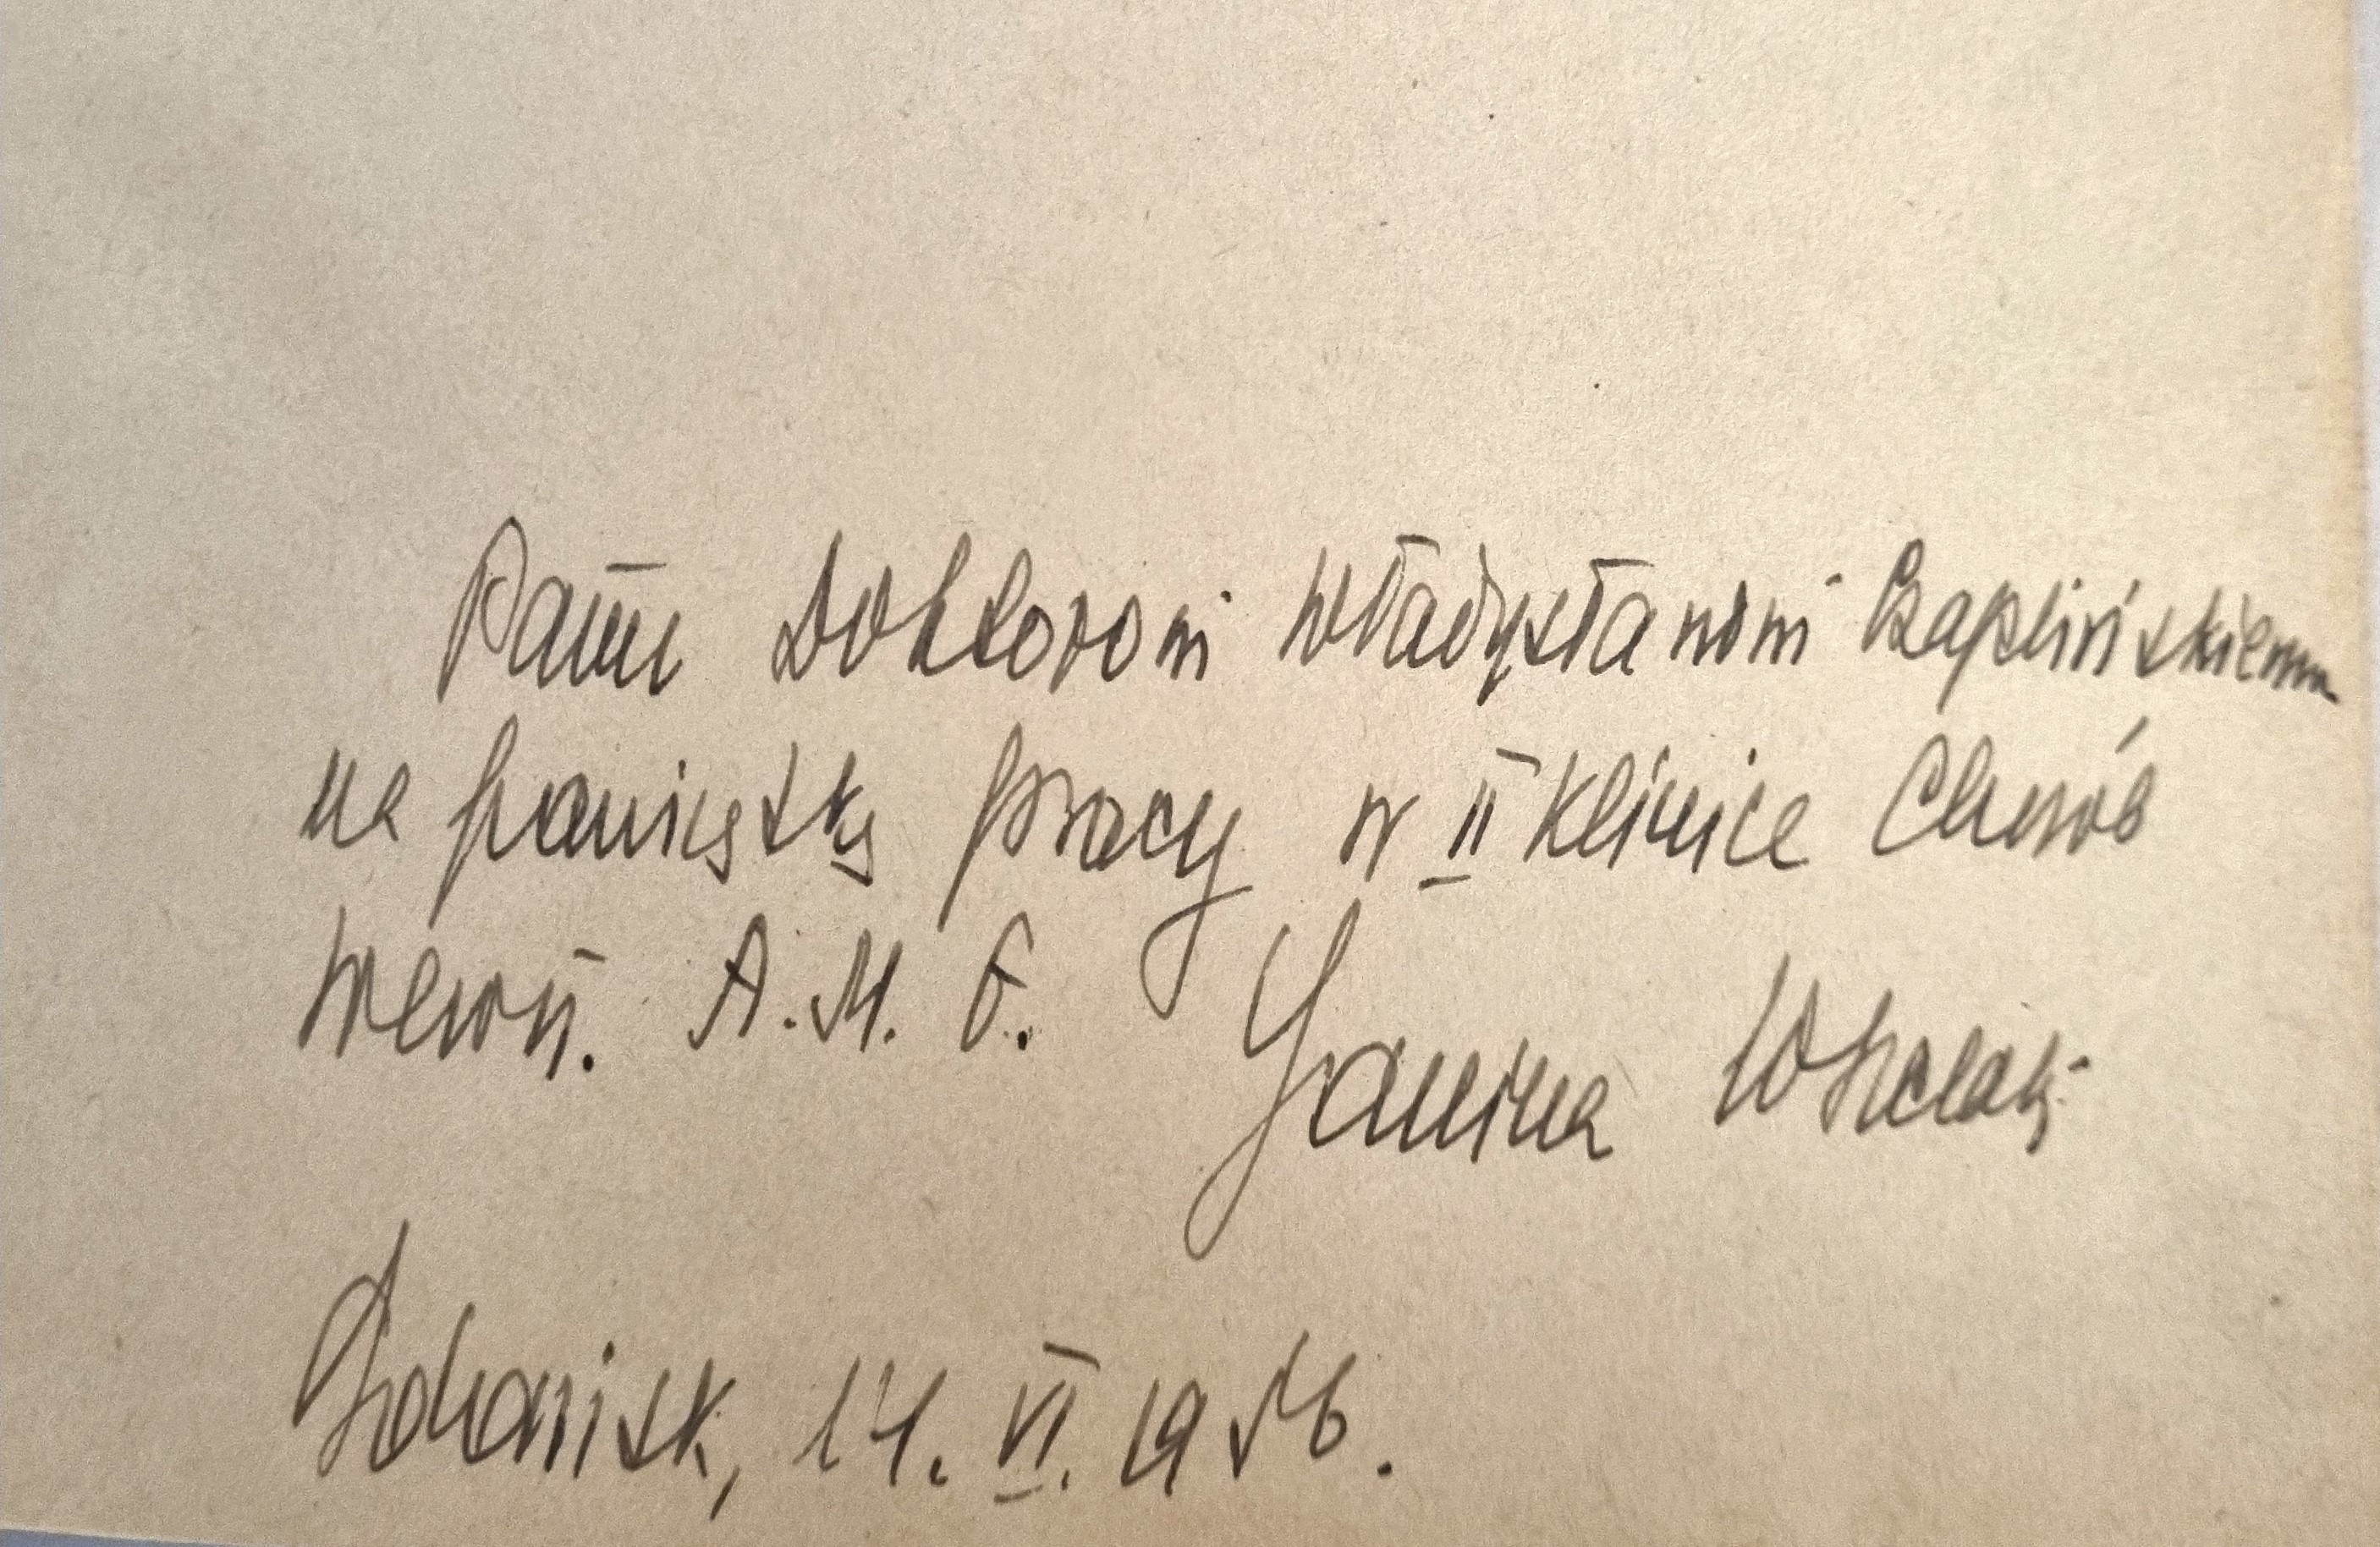 Panu Doktorowi Władysławowi Czaplińskiemu
na pamiątkę pracy w II Klinice Chorób
Wewn. A. M. G. Janina
Gdańsk, 14. VI. 1956.